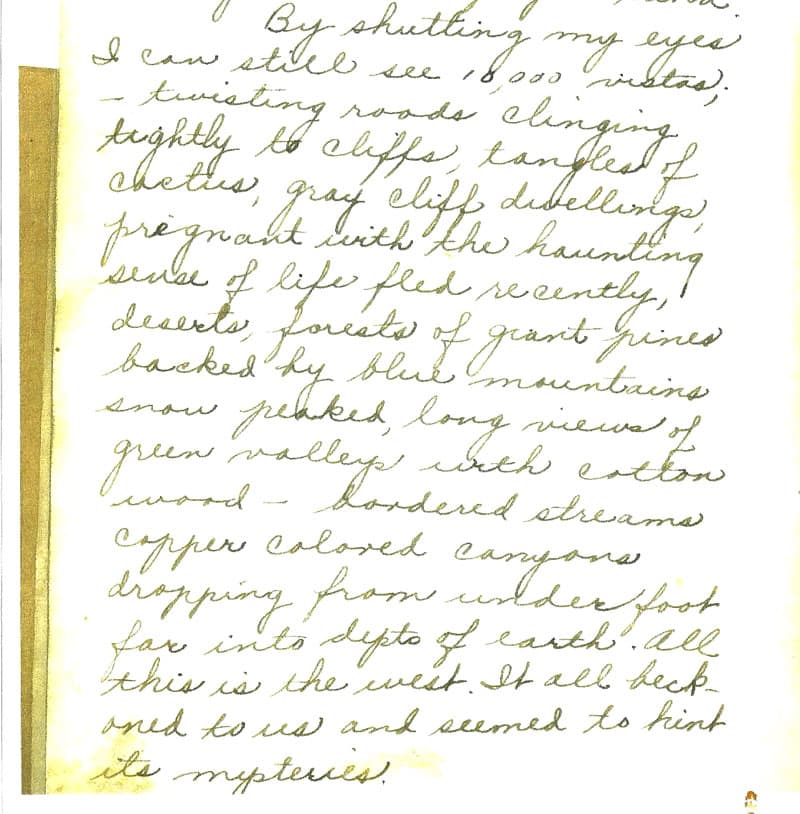 By shutting my eyes
I can still see 10,000 vistas,
- twisting roads clinging
tightly to cliffs, tangles of
cactus, gray cliff dwellings,
pregnant with the haunting
sense of life fled recently,
deserts, forests of giant pines
backed by blue mountains
snow peaked, long views of
green valleys with cotton
wood - bordered streams
copper colored canyons
dropping from under foot
far into depts of earth. All
this is the west. It all beck-
oned to us and seemed to hint
its mysteries.